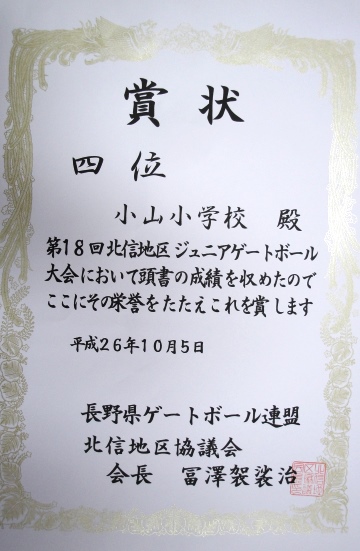 賞状
四位
小山小学校 殿
第18回北信地区ジュニアゲートボール
大会において頭書の成績を収めたので
ここにその栄誉をたたえこれを賞します
平成26年10月5日
長野県ゲートボール連盟
北信地区協議会
会長 冨澤袈裟治